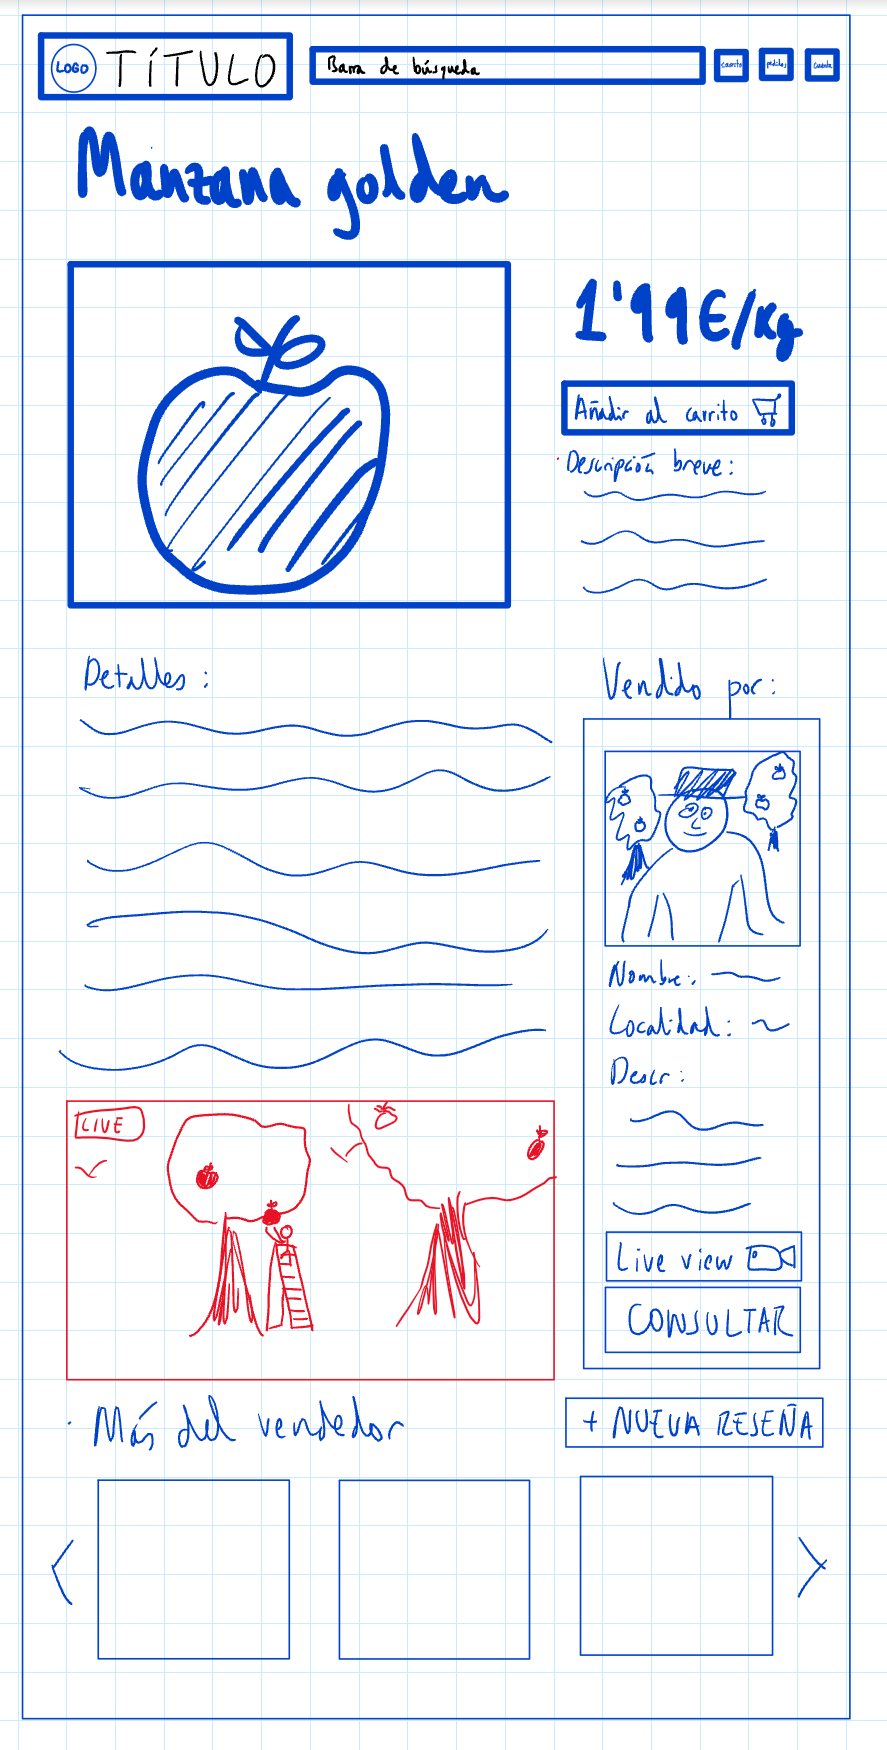 LOGO TÍTULO
Barra de búsqueda
carrito pedidos cuenta
Manzana golden
1'99€/kg
Añadir al carrito
Descripción breve:
Detalles:
Vendido por:
Nombre:
Localidad:
Descr:
LIVE
Live view
CONSULTAR
Más del vendedor
+ NUEVA RESEÑA